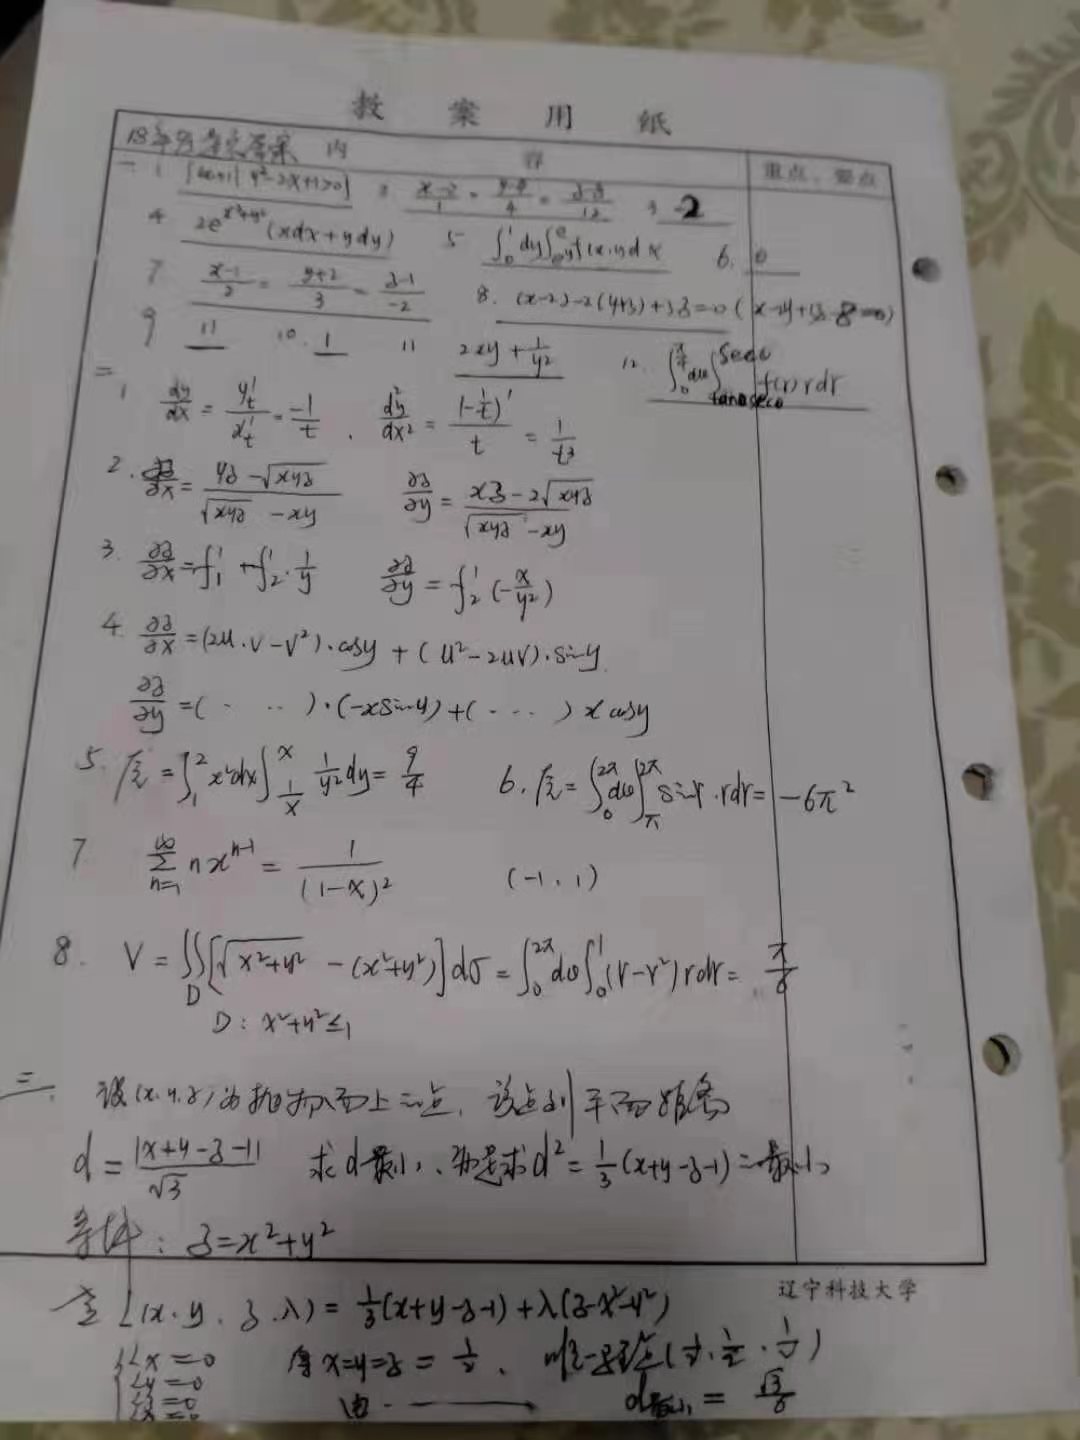 教 案 用 纸
18年 内 容 重点、要点
一 1 {(x,y)| y²-2x+1>0} 2 (x-2)/1 = = /12 3 -2
4 2e^(x²+y²)(xdx+ydy) 5 ∫₀¹dy∫_(e^y)^e f(x,y)dx 6. 0
7 (x-1)/2 = (y+2)/3 = (z-1)/-2 8. (x-2)-2(y+3)+3z=0 (
9 11 10. 1 11 2xy + 1/y² 12. ∫₀^(π/4)dθ∫_(tanθsecθ)^(secθ) f(r)rdr
二
1 dy/dx = y't/x't = -1/t . d²y/dx² = (-1/t)'/t = 1/t³
2. ∂z/∂x = (yz-√xyz)/(√xyz-xy) ∂z/∂y = (xz-2√xyz)/(√xyz-xy)
3. ∂z/∂x = f₁' + f₂'·1/y ∂z/∂y = f₂'(-x/y²)
4. ∂z/∂x = (2u·v-v²)·cosy + (u²-2uv)·siny
∂z/∂y = (· ··)·(-xsiny) + (· · ·) x cosy
5. 原 = ∫₁²x²dx∫_(1/x)^x 1/y² dy = 9/4 6. 原 = ∫₀^(2π)dθ∫_π^(2π) sinr·rdr = -6π²
7 ∑_(n=1)^∞ nx^(n-1) = 1/(1-x)² (-1, 1)
8. V = ∬_D[√(x²+y²) - (x²+y²)]dσ = ∫₀^(2π)dθ∫₀¹(r-r²)rdr = π/6
D: x²+y²≤1
三. 设(x,y,z)为抛物面上一点, 该点到平面距离
d = |x+y-z-1|/√3 求d最小, 就是求d² = 1/3(x+y-z-1)² 最小
条件: z=x²+y²
令 L(x,y,z,λ) = 1/3(x+y-z-1) + λ(z-x²-y²)
辽宁科技大学
Lx=0 得 x=y=z = 1/2, (1/2, 1/2, 1/2)
Ly=0
Lz=0 由 d最小 = √3/6